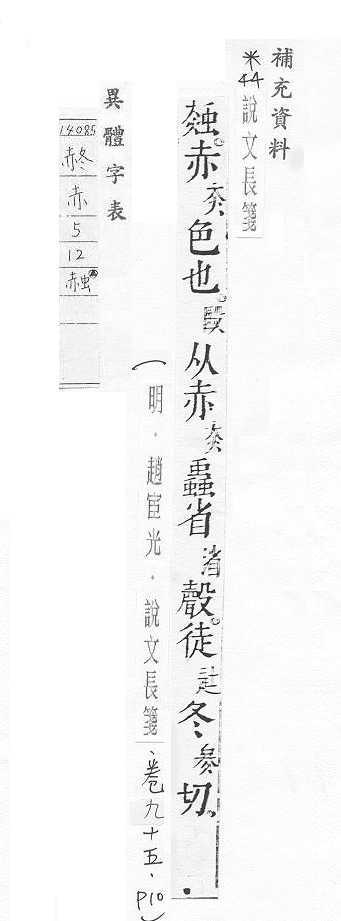 補充資料
※44 說文長箋
赨。赤色也。从赤蟲省聲。徒冬切。
（明．趙宧光．說文長箋、卷九十五．P10）
異體字表
14085
赤
5
12
赨